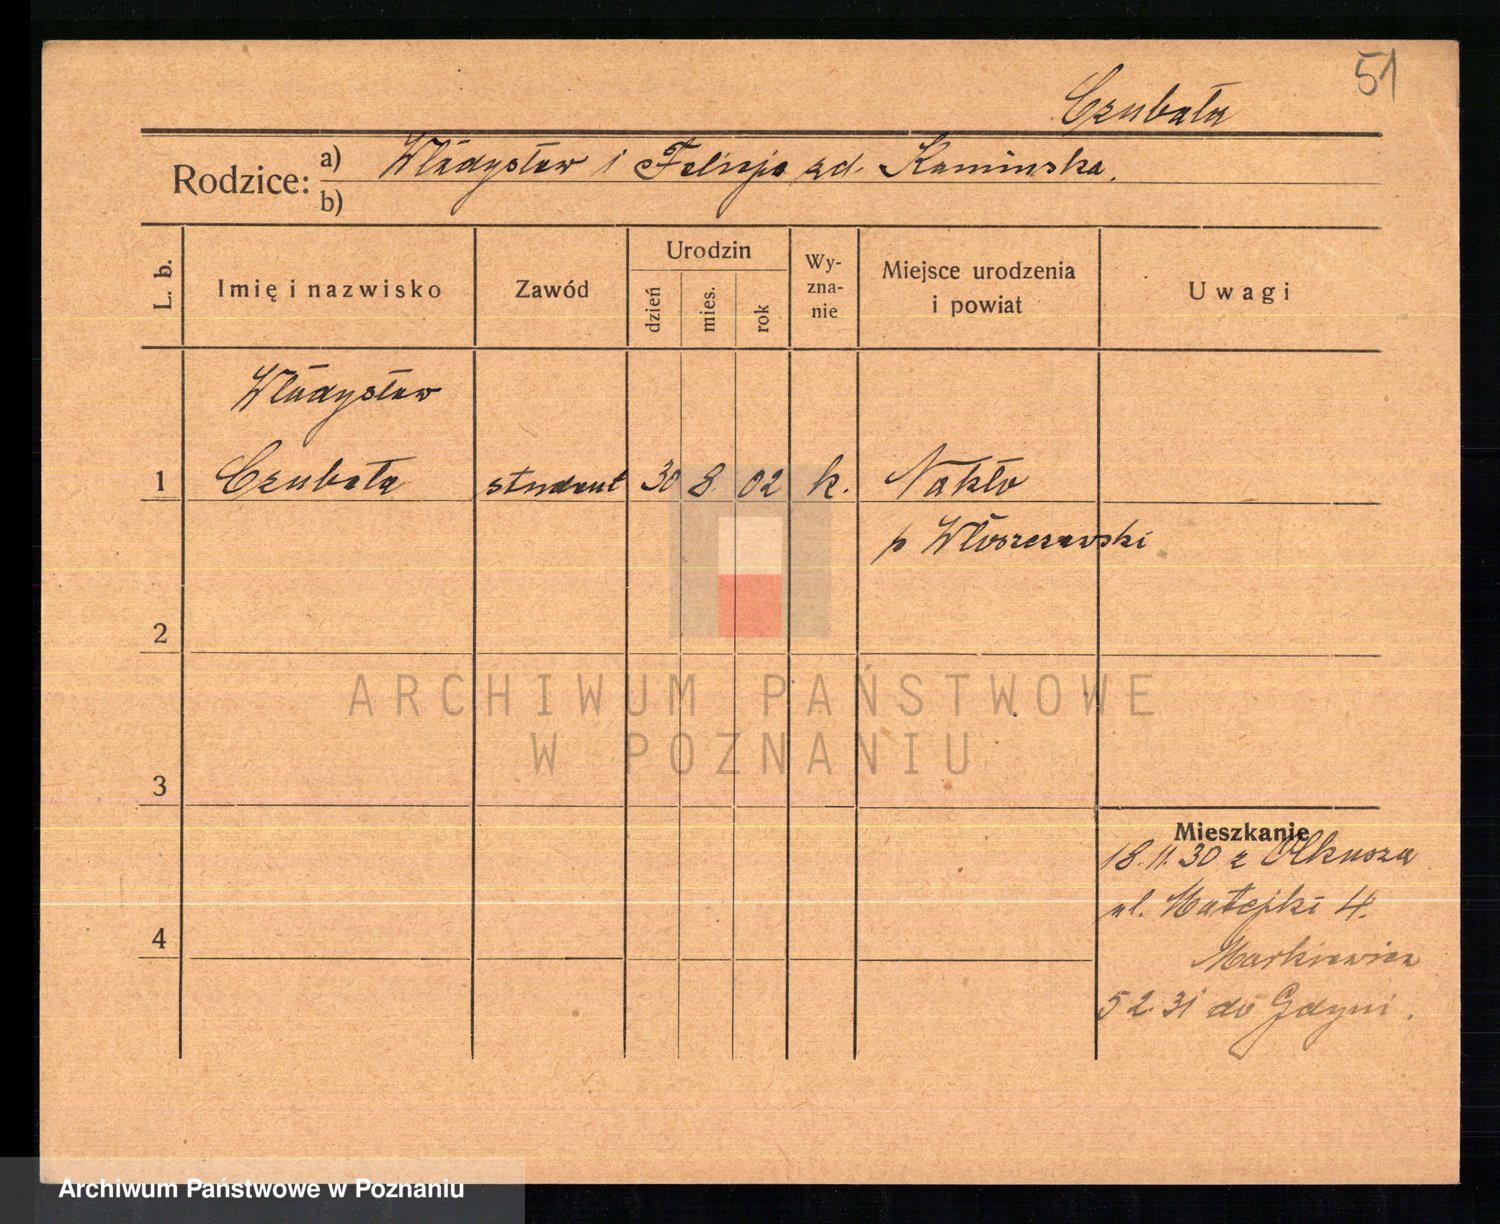 51
Czubała
Rodzice: a) Władysław i Felicja zd. Kamińska.
b)
L. b.
Imię i nazwisko
Zawód
Urodzin
dzień
mies.
rok
Wy-
zna-
nie
Miejsce urodzenia
i powiat
Uwagi
Władysław
1 Czubała student 30 8 02 k. Nakło
p Włoszczowski
2
3
4
Mieszkanie
18.11.30 z Olkusza
ul. Matejki 4.
Markiewicz
5 2 31 do Gdyni.
ARCHIWUM PAŃSTWOWE
W POZNANIU
Archiwum Państwowe w Poznaniu